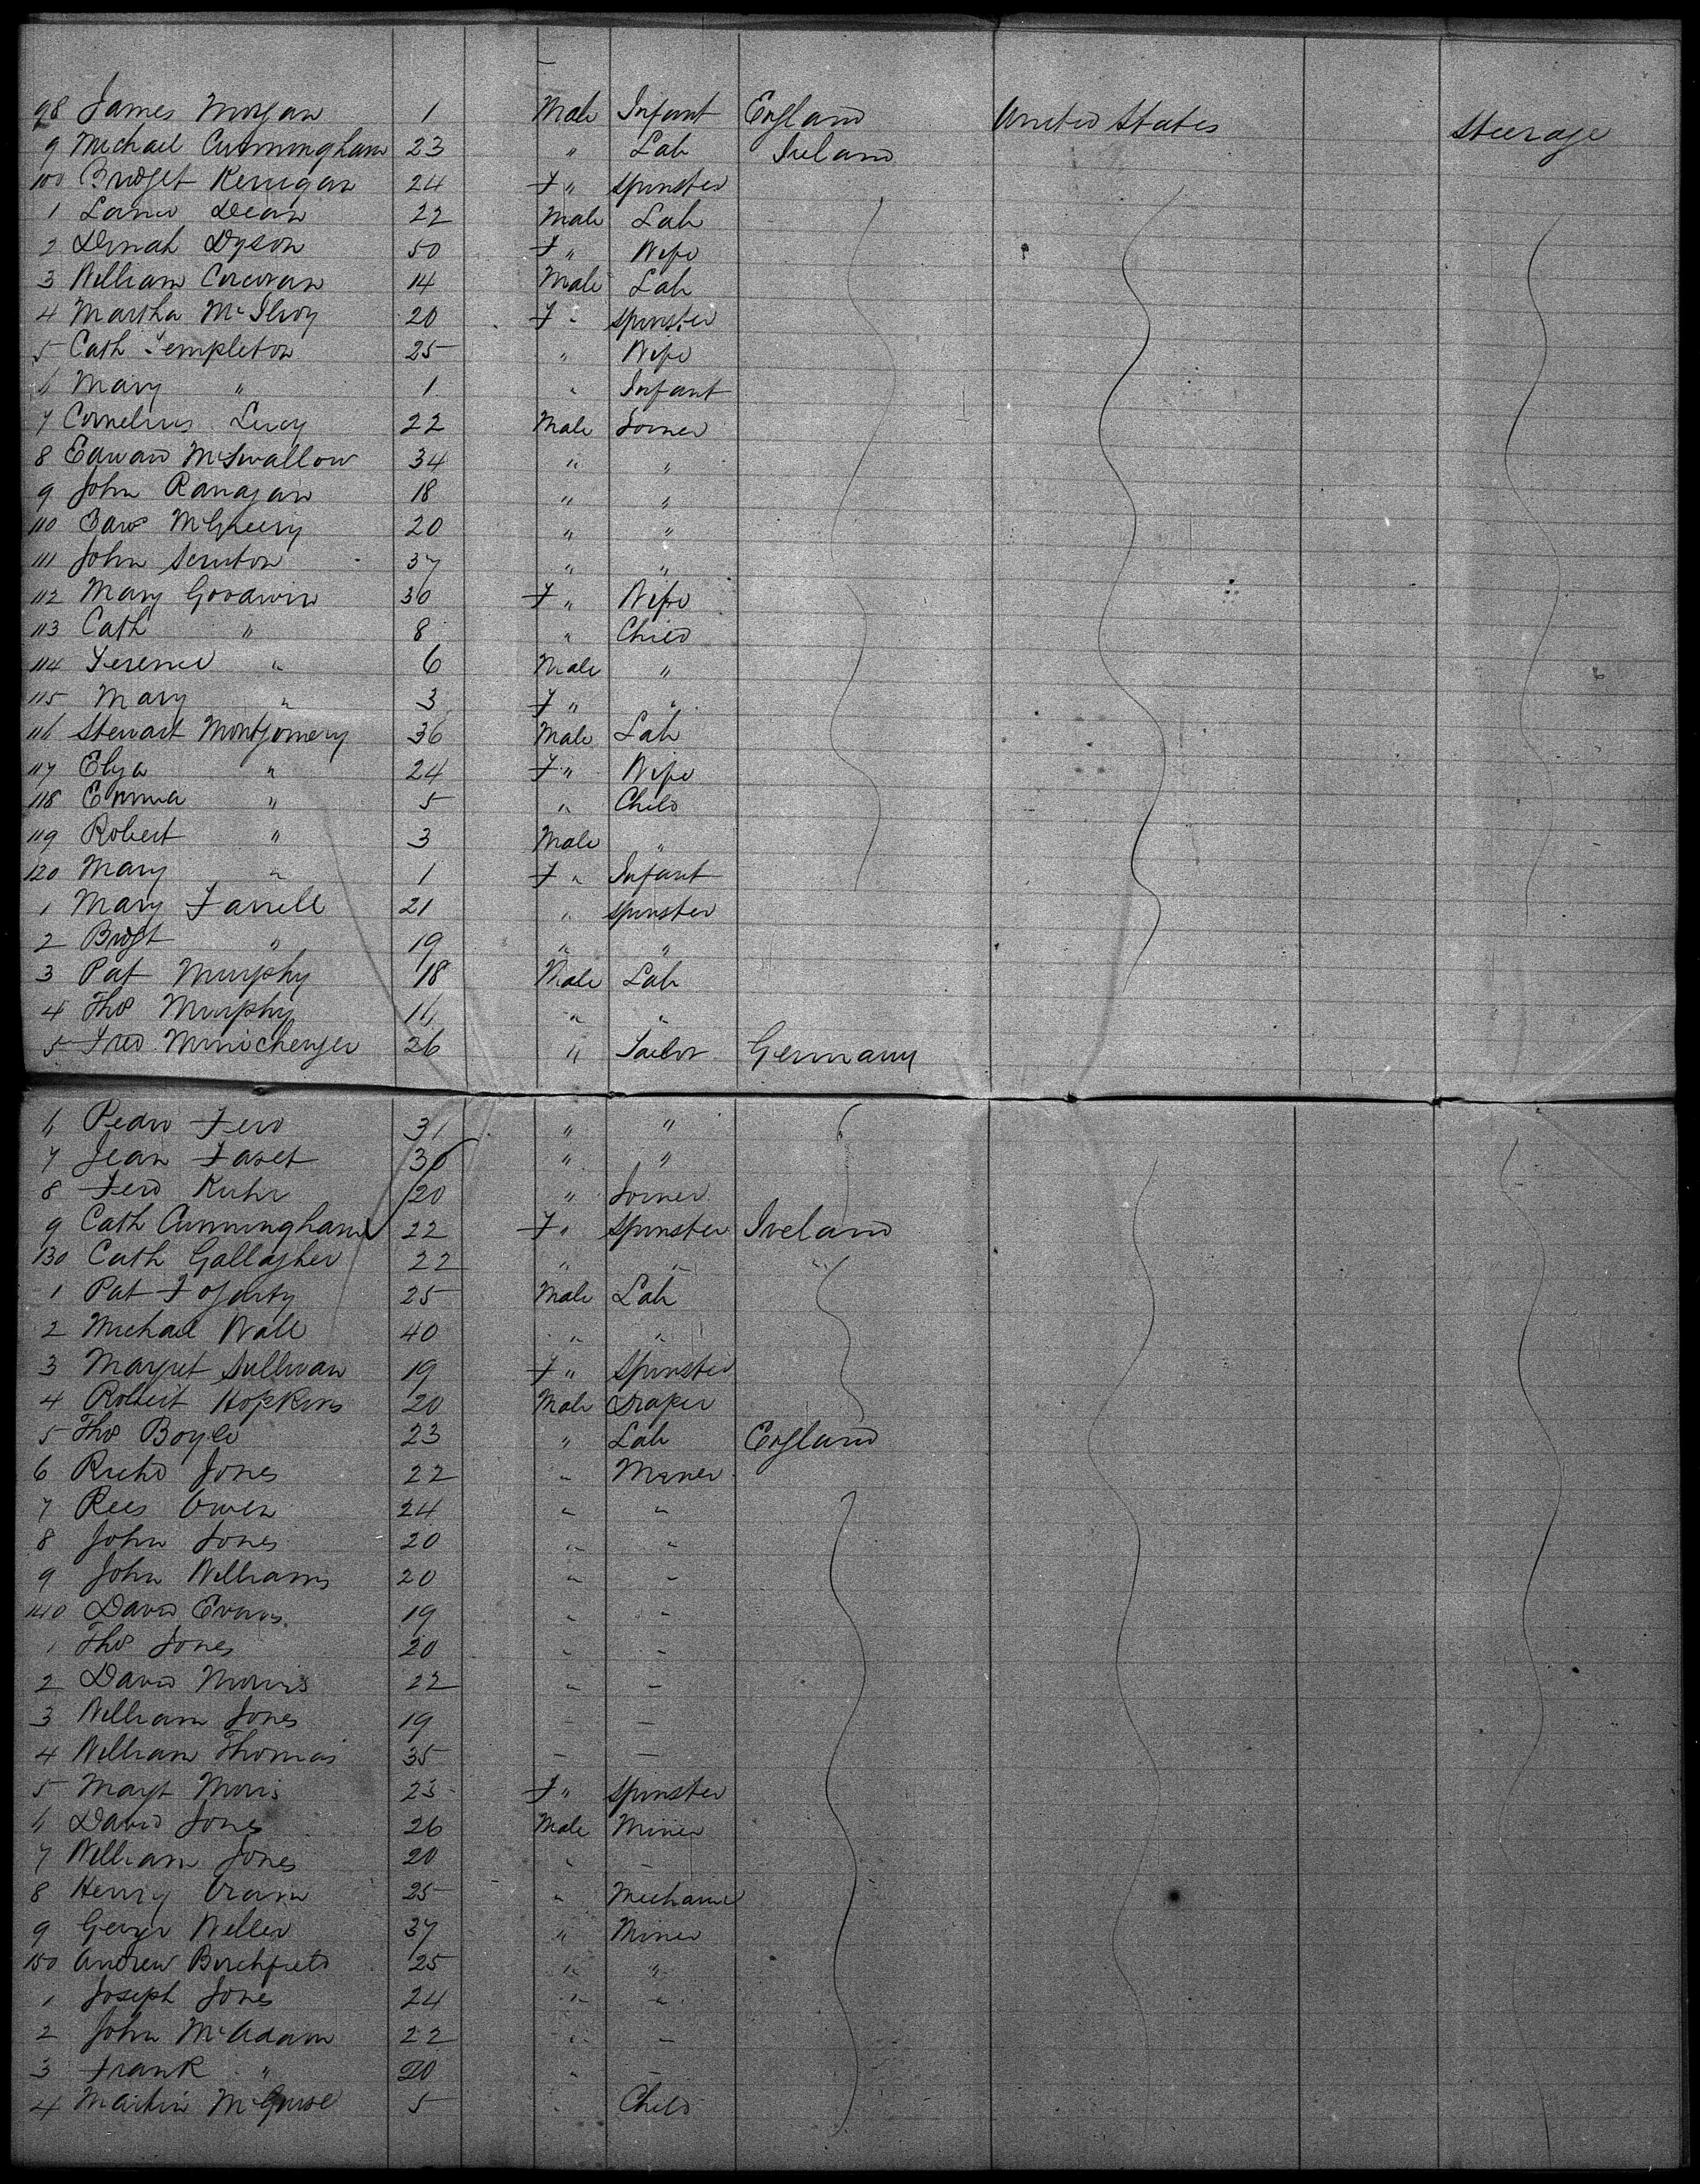 98 James Morgan 1 Male Infant England United States Steerage
9 Michael Cunningham 23 " Lab Ireland
100 Bridget Kerrigan 24 F " Spinster
1 Dean 22 Male Lab
2 Dinah Dyson 50 F " Wife
3 William Corcoran 14 Male Lab
4 Martha McIlroy 20 F " Spinster
5 Cath Templeton 25 " Wife
6 Mary " 1 " Infant
7 Cornelius Lucy 22 Male Joiner
8 Edward McSwallow 34 " "
9 John Ranagan 18 " "
110 20 " "
111 John Scruton 37 " "
112 Mary Goodwin 30 F " Wife
113 Cath " 8 " Child
114 Terence " 6 Male "
115 Mary " 3 F " "
116 Stewart Montgomery 36 Male Lab
117 Eliza " 24 F " Wife
118 Emma " 5 " Child
119 Robert " 3 Male "
120 Mary " 1 F " Infant
1 Mary Farrell 21 " Spinster
2 Bridgt " 19 " "
3 Pat Murphy 18 Male Lab
4 Thos Murphy 16 " "
5 Fred 26 " Tailor Germany
6 31 " "
7 Jean 30 " "
8 Ferd Kuhr 20 " Joiner
9 Cath Cunningham 22 F " Spinster Ireland
130 Cath Gallagher 22 " " "
1 Pat Fogarty 25 Male Lab
2 Michael Wall 40 " "
3 Margret Sullivan 19 F " Spinster
4 Robert Hopkins 20 Male Draper
5 Thos Boyle 23 " Lab England
6 Richd Jones 22 " Miner
7 Rees Owen 24 " "
8 John Jones 20 " "
9 John Williams 20 " "
140 David Evans 19 " "
1 Thos Jones 20 " "
2 David Morris 22 " "
3 William Jones 19 " "
4 William Thomas 35 " "
5 Margt Morris 23 F " Spinster
6 David Jones 26 Male Miner
7 William Jones 20 " "
8 Henry Oram 25 " Mechanic
9 George Weller 37 " Miner
150 Andrew Birchfield 25 " "
1 Joseph Jones 24 " "
2 John McAdam 22 " "
3 Frank " 20 " "
4 Martin McGuire 5 " Child